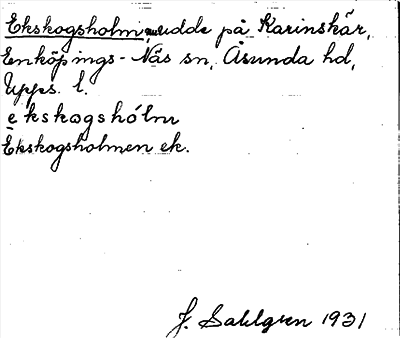 Ekskogsholm, udde på Karinskär,
Enköpings-Näs sn, Åsunda hd,
Upps. l.
ekskogshólm
Ekskogsholmen ek.
J. Sahlgren 1931